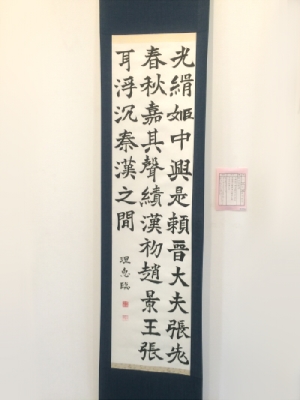 光緝姬中興是賴晉大夫張老
春秋嘉其聲績漢初趙景王張
耳浮沉秦漢之間
理惠臨